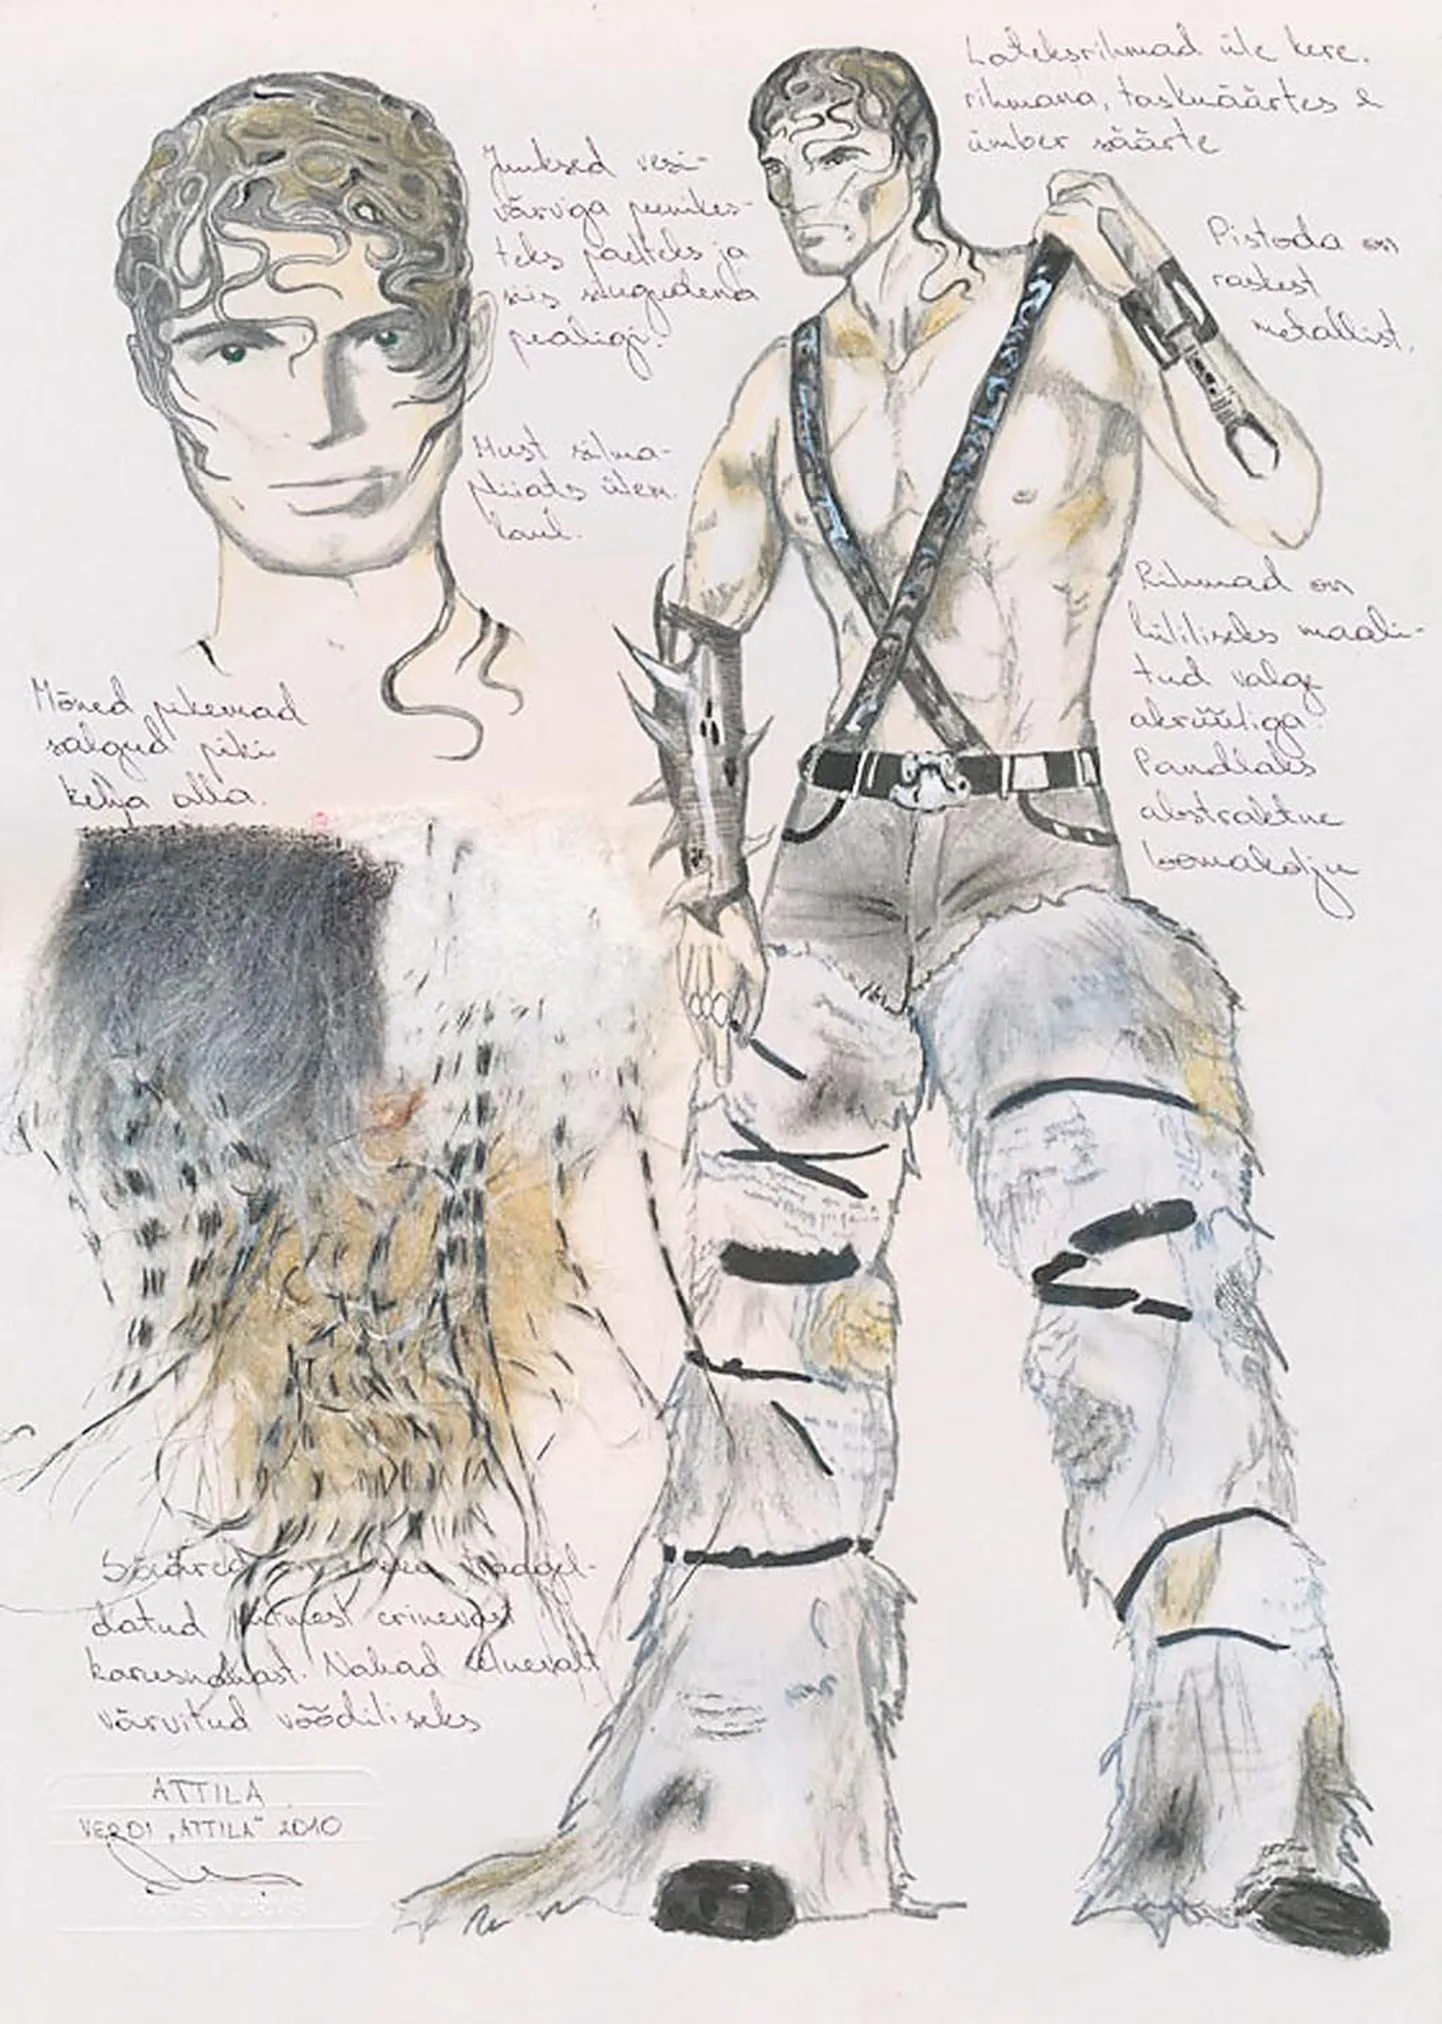 Lateksrihmad üle kere.
rihmana, taskuäärtes &
ümber säärte
Juuksed vesi-
värviga peenikes-
teks patteks ja
siis silugudena
pealigi.
Pistoda on
raskest
metallist.
Must silma-
pliiats ülem.
laul.
Rihmad on
läikliseks maali-
tud valge
akrüüliga.
Pandlaks
abstraktne
loomakolju
Mõned pikemad
salgud piki
kehja alla.
Sääred
datud mitmest erinevast
karusnahast. Nahad erinevalt
värvitud vöödiliseks
ATTILA
VERDI „ATTILA“ 2010